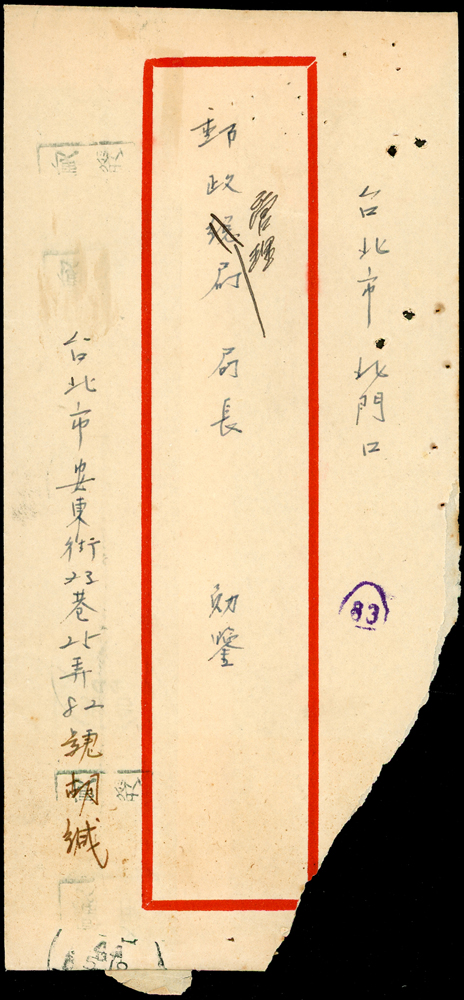 台北市北門口
郵政總局 局長 勛鑒
管理
台北市安東街23巷25弄82號胡緘
83